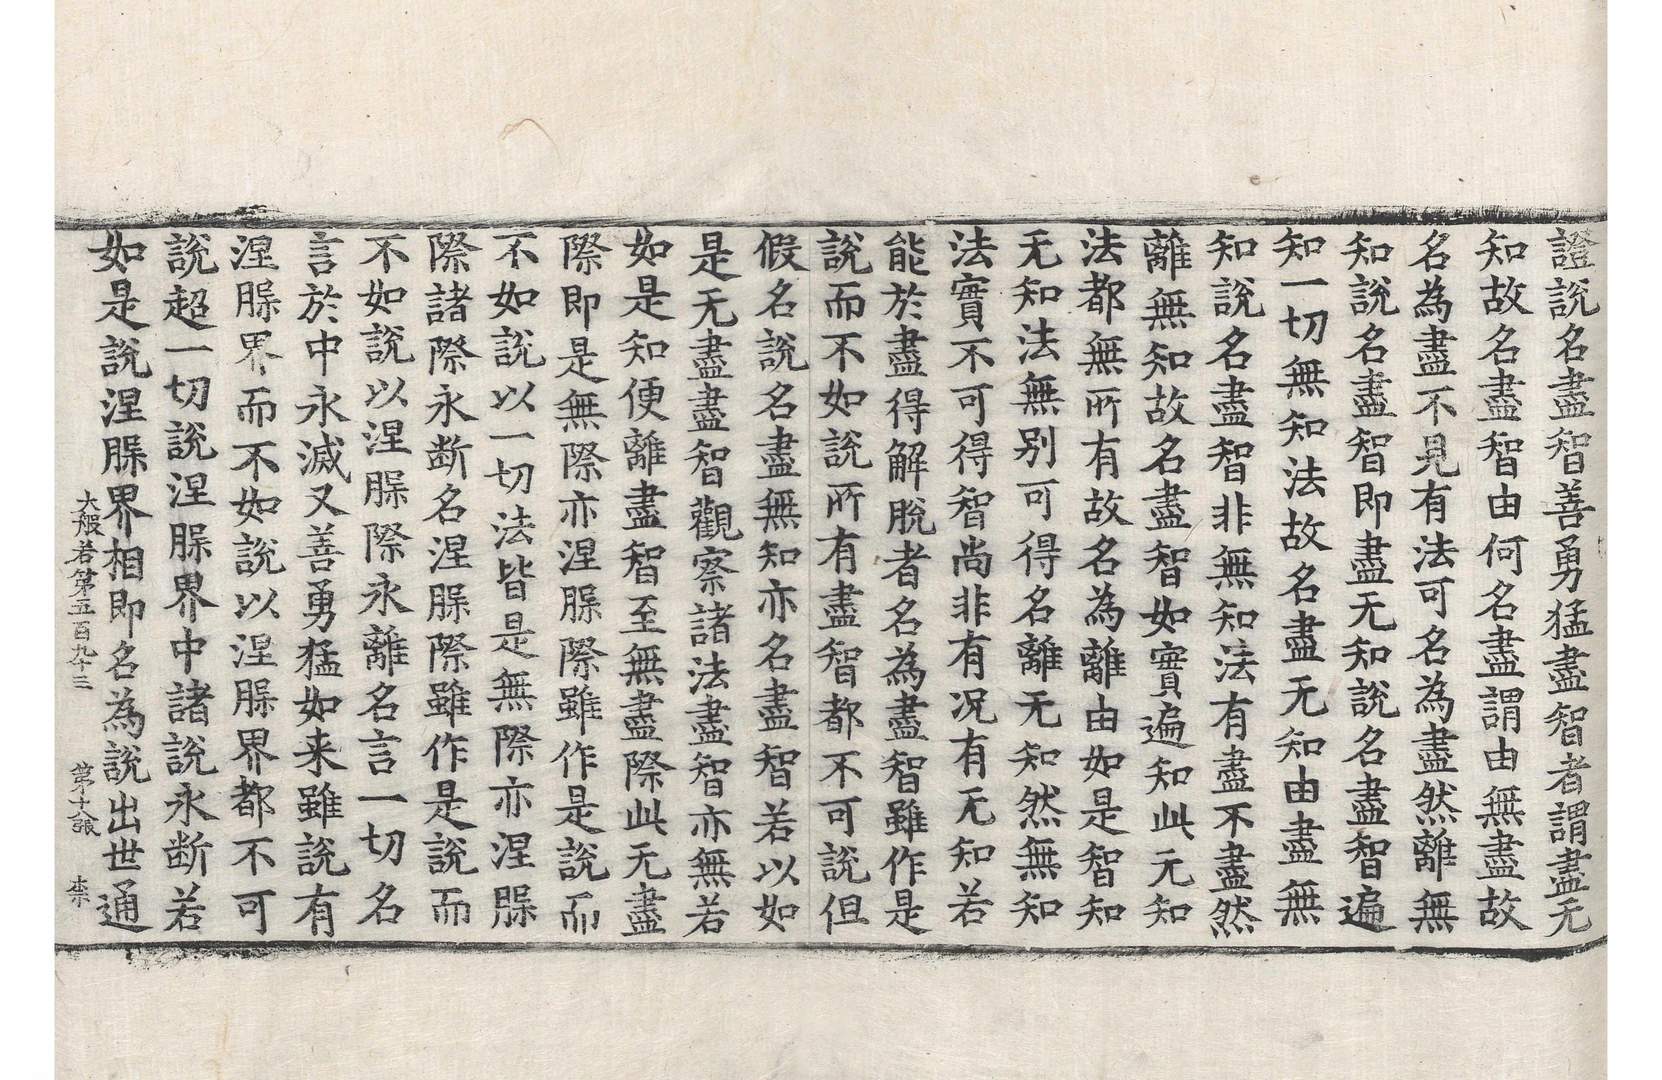 證說名盡智善勇猛盡智者謂盡无
知故名盡智由何名盡謂由無盡故
名為盡不見有法可名為盡然離無
知說名盡智即盡无知說名盡智遍
知一切無知法故名盡无知由盡無
知說名盡智非無知法有盡不盡然
離無知故名盡智如實遍知此无知
法都無所有故名為離由如是智知
无知法無別可得名離无知然無知
法實不可得智尚非有况有无知若
能於盡得解脫者名為盡智雖作是
說而不如說所有盡智都不可說但
假名說名盡無知亦名盡智若以如
是无盡盡智觀察諸法盡智亦無若
如是知便離盡智至無盡際此无盡
際即是無際亦涅槃際雖作是說而
不如說以一切法皆是無際亦涅槃
際諸際永断名涅槃際雖作是說而
不如說以涅槃際永離名言一切名
言於中永滅又善勇猛如来雖說有
涅槃界而不如說以涅槃界都不可
說超一切說涅槃界中諸說永断若
如是說涅槃界相即名為說出世通
大般若第五百九十三　第十八張　李